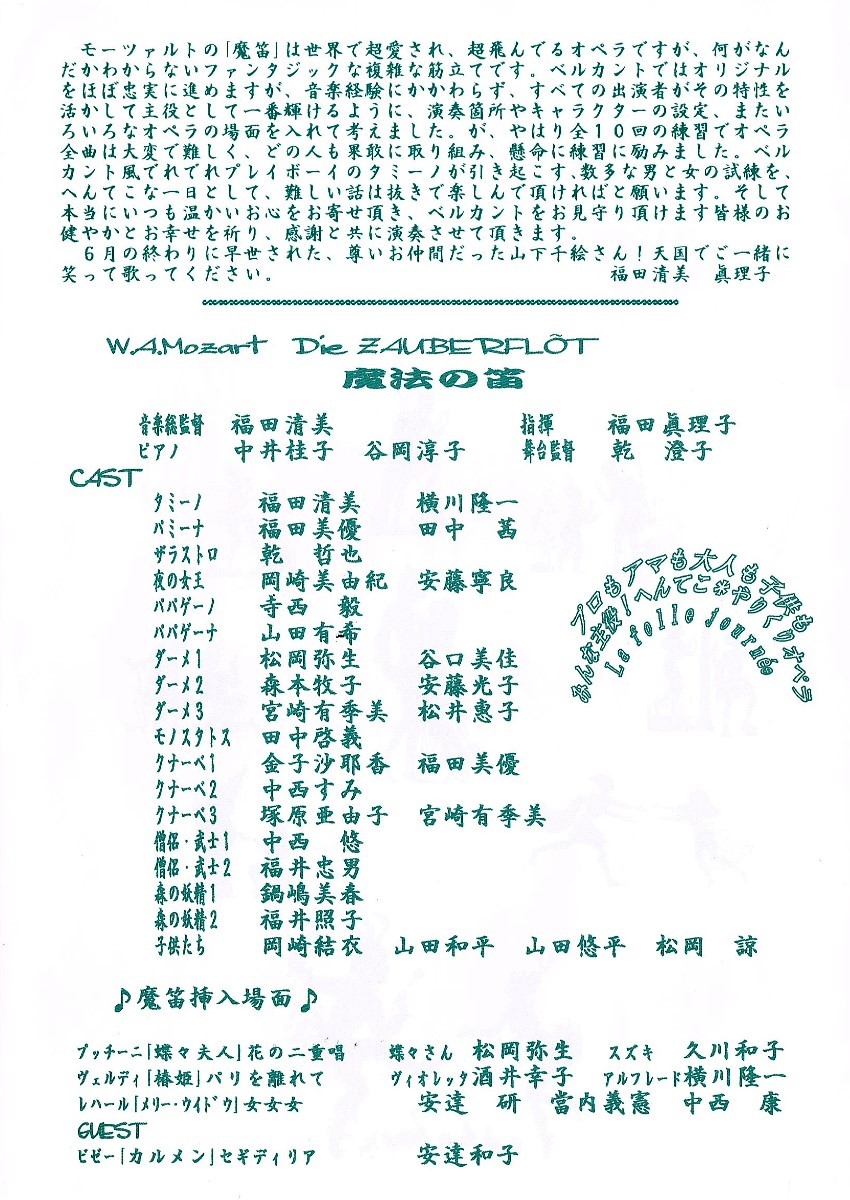 モーツァルトの「魔笛」は世界で超愛され、超飛んでるオペラですが、何がなん
だかわからないファンタジックな複雑な筋立てです。ベルカントではオリジナル
をほぼ忠実に進めますが、音楽経験にかかわらず、すべての出演者がその特性を
活かして主役として一番輝けるように、演奏箇所やキャラクターの設定、またい
ろいろなオペラの場面を入れて考えました。が、やはり全10回の練習でオペラ
全曲は大変で難しく、どの人も果敢に取り組み、懸命に練習に励みました。ベル
カント風でれでれプレイボーイのタミーノが引き起こす、数多な男と女の試練を、
へんてこな一日として、難しい話は抜きで楽しんで頂ければと願います。そして
本当にいつも温かいお心をお寄せ頂き、ベルカントをお見守り頂けます皆様のお
健やかとお幸せを祈り、感謝と共に演奏させて頂きます。
6月の終わりに早世された、尊いお仲間だった山下千絵さん！天国でご一緒に
笑って歌ってください。 福田清美 眞理子
W.A.Mozart Die ZAUBERFLÕT
魔法の笛
音楽総監督 福田清美 指揮 福田眞理子
ピアノ 中井桂子 谷岡淳子 舞台監督 乾 澄子
CAST
タミーノ 福田清美 横川隆一
パミーナ 福田美優 田中 茜
ザラストロ 乾 哲也
夜の女王 岡崎美由紀 安藤寧良
パパゲーノ 寺西 毅
パパゲーナ 山田有希
ダーメ1 松岡弥生 谷口美佳
ダーメ2 森本牧子 安藤光子
ダーメ3 宮崎有季美 松井惠子
モノスタトス 田中啓義
クナーベ1 金子沙耶香 福田美優
クナーベ2 中西すみ
クナーベ3 塚原亜由子 宮崎有季美
僧侶・武士1 中西 悠
僧侶・武士2 福井忠男
森の妖精1 鍋嶋美春
森の妖精2 福井照子
子供たち 岡崎結衣 山田和平 山田悠平 松岡 諒
プロもアマも大人も子供も
みんな主役！へんてこ＊やりくりオペラ
La folle journée
♪魔笛挿入場面♪
プッチーニ「蝶々夫人」花の二重唱 蝶々さん 松岡弥生 スズキ 久川和子
ヴェルディ「椿姫」パリを離れて ヴィオレッタ 酒井幸子 アルフレード 横川隆一
レハール「メリー・ウイドウ」女女女 安達 研 當内義憲 中西 康
GUEST
ビゼー「カルメン」セギディリア 安達和子